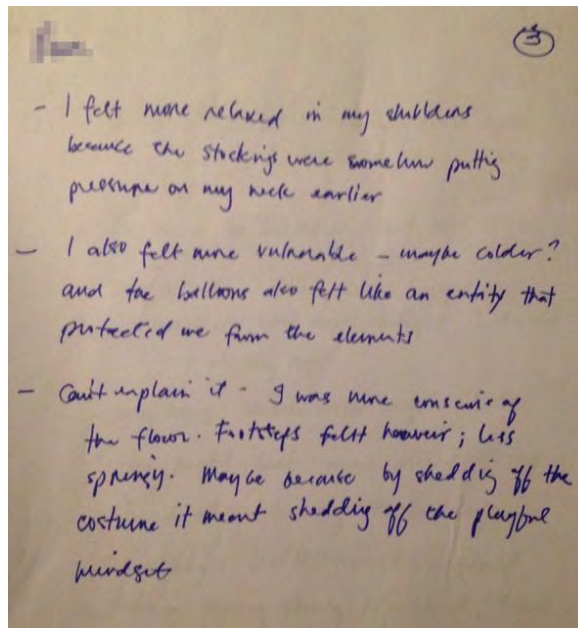 3
- I felt more relaxed in my shoulders
because the stockings were somehow putting
pressure on my neck earlier
- I also felt more vulnerable - maybe colder?
and the balloons also felt like an entity that
protected me from the elements
- Can't explain it - I was more conscious of
the floor. Footsteps felt heavier; less
springy. Maybe because by shedding off the
costume it meant shedding off the playful
mindset